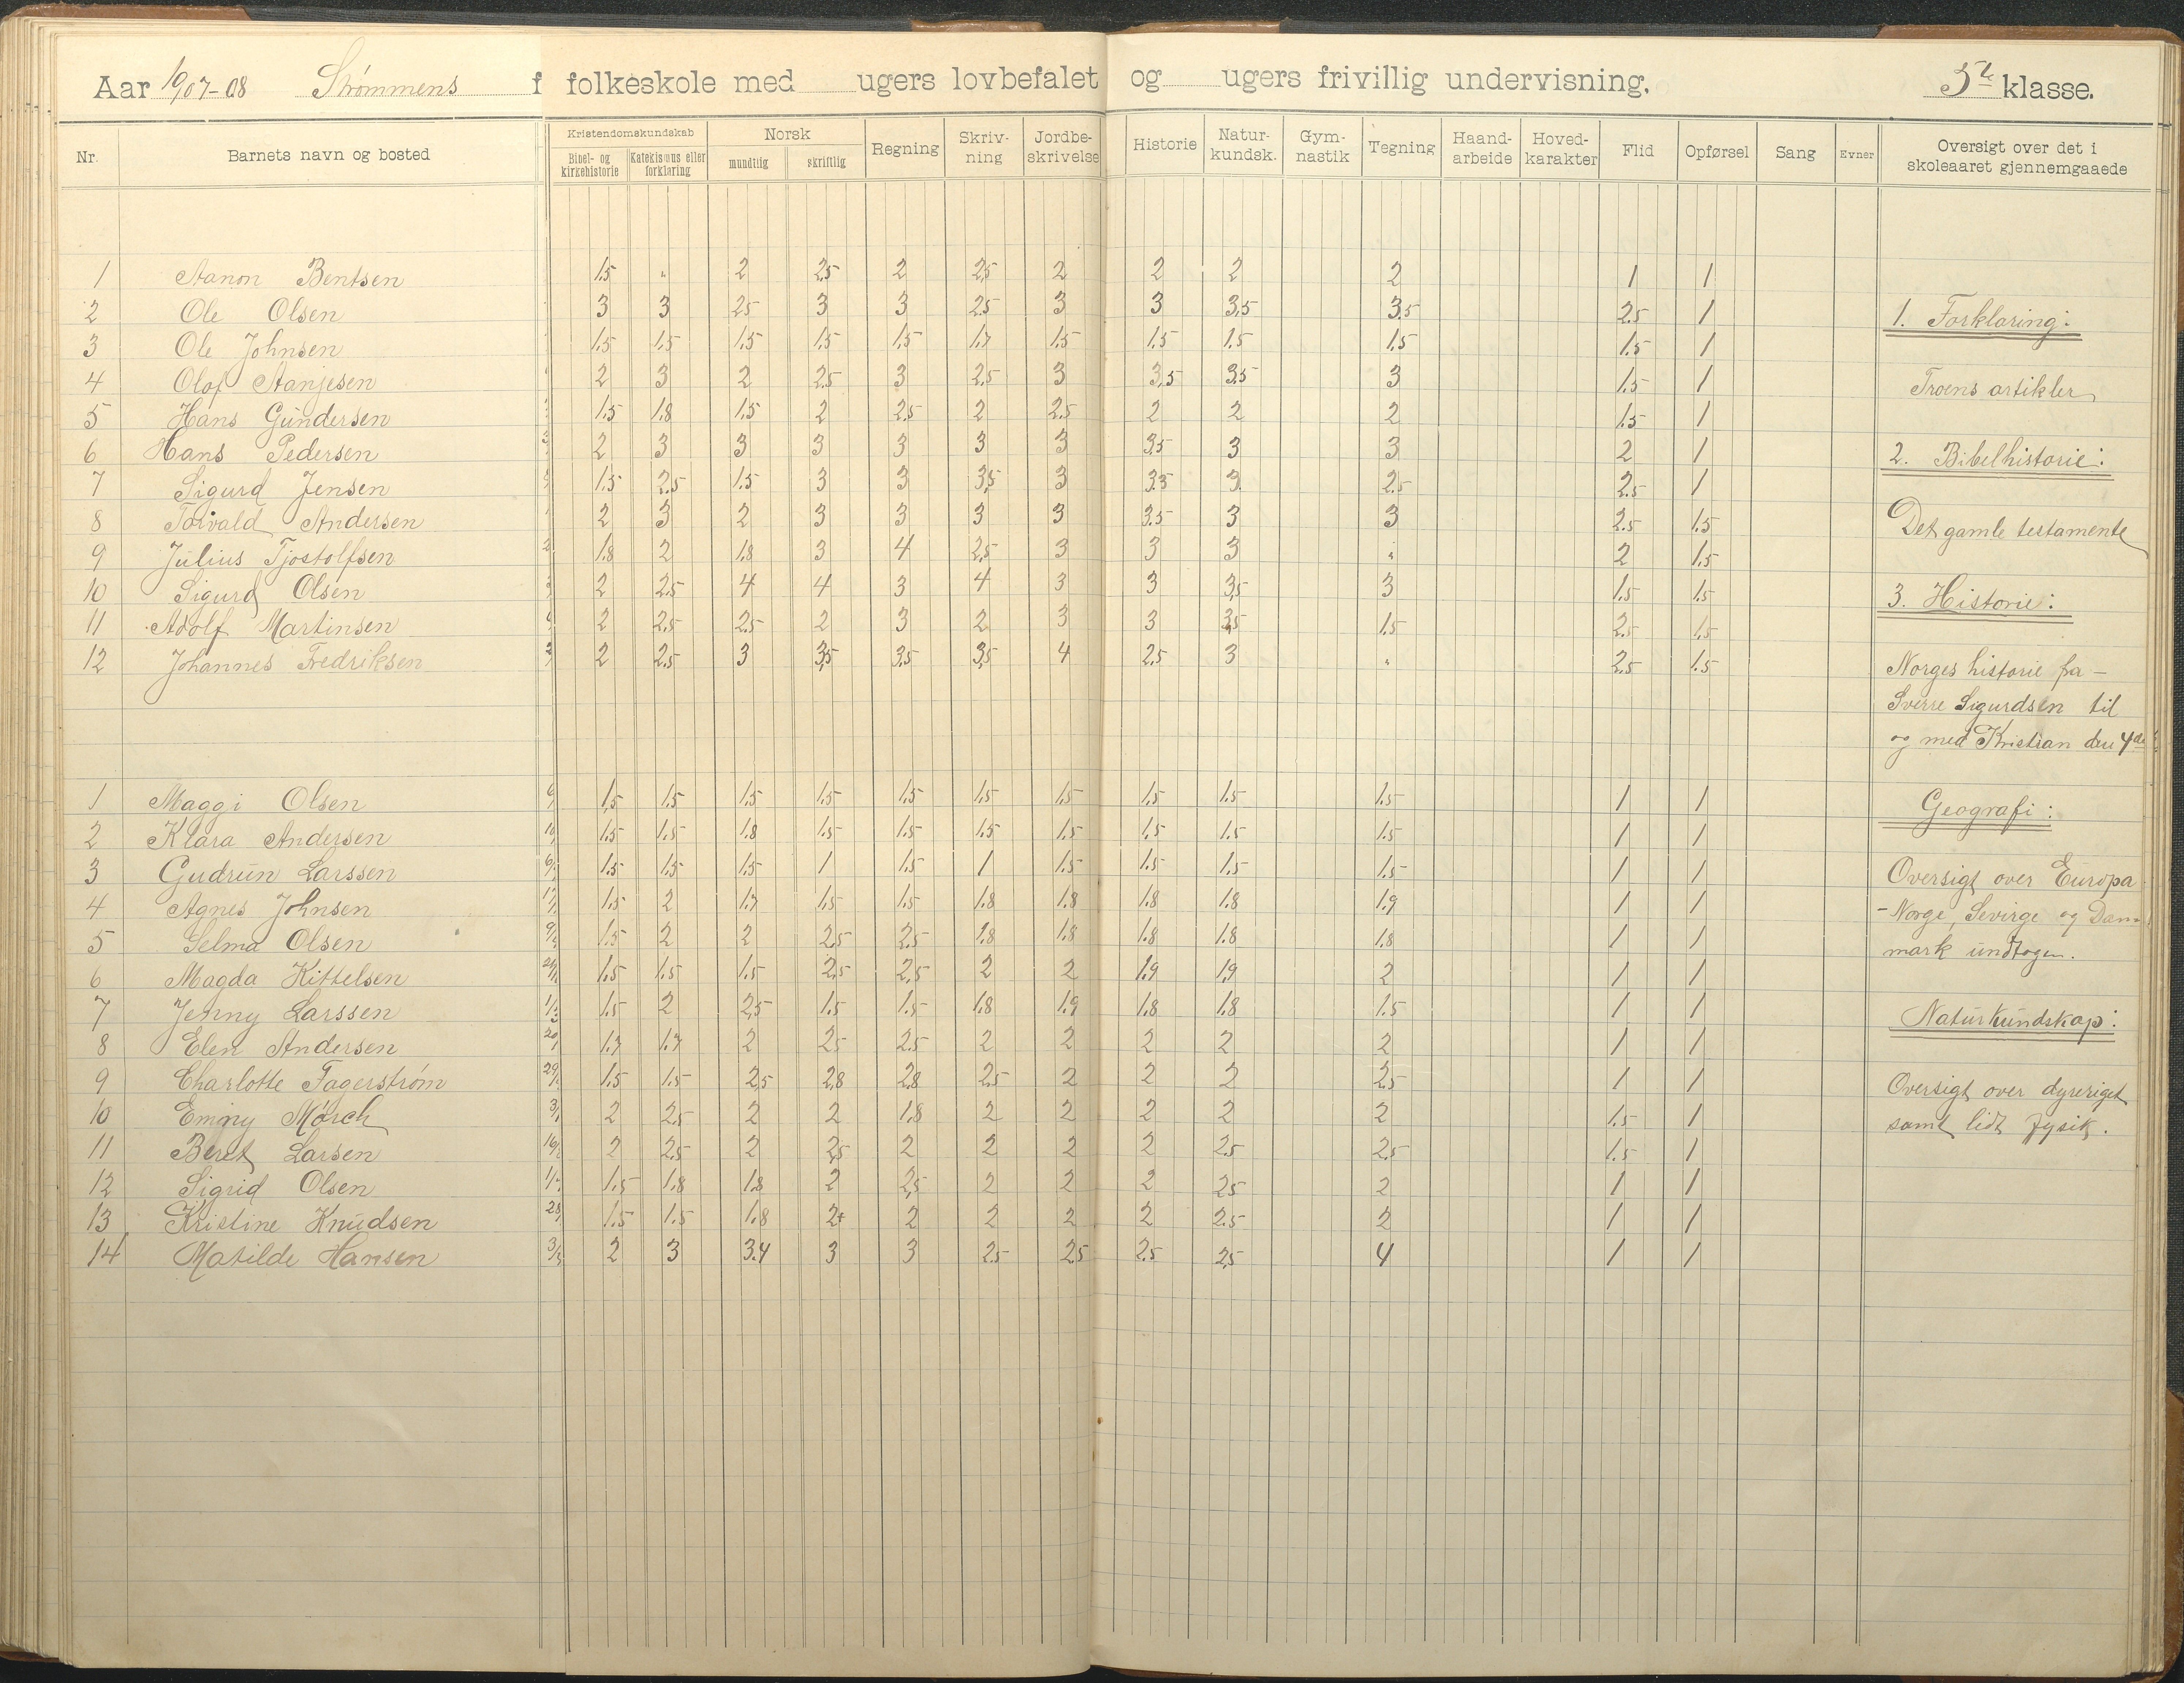 Aar 1907-08 Strømmens folkeskole med ugers lovbefalet og ugers frivillig undervisning. 5te klasse.
Nr. Barnets navn og bosted Kristendomskundskab Bibel- og kirkehistorie Katekismus eller forklaring Norsk mundtlig skriftlig Regning Skriv-ning Jordbe-skrivelse Historie Natur-kundsk. Gym-nastik Tegning Haand-arbeide Hoved-karakter Flid Opførsel Sang Evner Oversigt over det i skoleaaret gjennemgaaede
1 Aanon Bentsen 1.5 " 2 2.5 2 2.5 2 2 2 2 1 1
2 Ole Olsen 3 3 2.5 3 3 2.5 3 3 3.5 3.5 2.5 1
3 Ole Johnsen 1.5 1.5 1.5 1.5 1.5 1.7 1.5 1.5 1.5 1.5 1.5 1
4 Olaf Aanjesen 2 3 2 2.5 3 2.5 3 3.5 3.5 3 1.5 1
5 Hans Gundersen 1.5 1.8 1.5 2 2.5 2 2.5 2 2 2 1.5 1
6 Hans Pedersen 2 3 3 3 3 3 3 3.5 3 3 2 1
7 Sigurd Jensen 1.5 2.5 1.5 3 3 3.5 3 3.5 3 2.5 2.5 1
8 Torvald Andersen 2 3 2 3 3 3 3 3.5 3 3 2.5 1.5
9 Julius Tjostolfsen 1.8 2 1.8 3 4 2.5 3 3 3 " 2 1.5
10 Sigurd Olsen 2 2.5 4 4 3 4 3 3 3.5 3 1.5 1.5
11 Adolf Martinsen 2 2.5 2.5 2 3 2 3 3 3.5 1.5 2.5 1.5
12 Johannes Fredriksen 2 2.5 3 3.5 3.5 3.5 4 2.5 3 " 2.5 1.5
1 Maggi Olsen 1.5 1.5 1.5 1.5 1.5 1.5 1.5 1.5 1.5 1.5 1 1
2 Klara Andersen 1.5 1.5 1.8 1.5 1.5 1.5 1.5 1.5 1.5 1.5 1 1
3 Gudrun Larssen 1.5 1.5 1.5 1 1.5 1 1.5 1.5 1.5 1.5 1 1
4 Agnes Johnsen 1.5 2 1.7 1.5 1.5 1.8 1.8 1.8 1.8 1.9 1 1
5 Selma Olsen 1.5 2 2 2.5 2.5 1.8 1.8 1.8 1.8 1.8 1 1
6 Magda Kittelsen 1.5 1.5 1.5 2.5 2.5 2 2 1.9 1.9 2 1 1
7 Jenny Larssen 1.5 2 2.5 1.5 1.5 1.8 1.9 1.8 1.8 1.5 1 1
8 Elen Andersen 1.7 1.7 2 2.5 2.5 2 2 2 2 2 1 1
9 Charlotte Fagerstrøm 1.5 1.5 2.5 2.8 2.8 2.5 2 2 2 2.5 1 1
10 Emmy Mørch 2 2.5 2 2 1.8 2 2 2 2 2 1.5 1
11 Beret Larsen 2 2.5 2 2.5 2 2 2 2 2.5 2.5 1.5 1
12 Sigrid Olsen 1.5 1.8 1.8 2 2.5 2 2 2 2.5 2 1 1
13 Kristine Knudsen 1.5 1.5 1.8 2+ 2 2 2 2 2.5 2 1 1
14 Matilde Hansen 2 3 3.4 3 3 2.5 2.5 2.5 2.5 4 1 1
1. Forklaring:
Troens artikler
2. Bibelhistorie:
Det gamle testamente
3. Historie:
Norges historie fra -
Sverre Sigurdsen til
og med Kristian den 4de
Geografi:
Oversigt over Europa
- Norge, Sverige og Dan-
mark undtagen.
Naturkundskap:
Oversigt over dyreriget
samt lidt fysik.